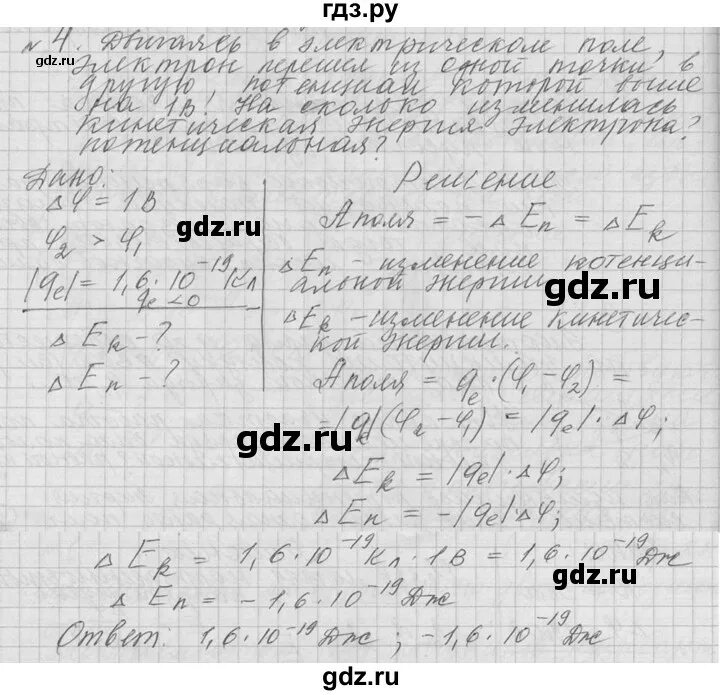 гдз.ру
№4. Двигаясь в электрическом поле,
электрон перешел из одной точки в
другую, потенциал которой выше
на 1В. На сколько изменилась
кинетическая энергия электрона?
потенциальная?
Дано:
Δφ = 1В
φ₂ > φ₁
|qe| = 1,6·10⁻¹⁹Кл
qe<0
ΔEk - ?
ΔEп - ?
Решение
Aполя = -ΔEп = ΔEk
ΔEп - изменение потенци-
альной энергии.
ΔEk - изменение кинетичес-
кой энергии.
Aполя = qe·(φ₁-φ₂) =
=|qe|(φ₂-φ₁) = |qe|·Δφ;
ΔEk = |qe|·Δφ;
ΔEп = -|qe|·Δφ;
ΔEk = 1,6·10⁻¹⁹Кл·1В = 1,6·10⁻¹⁹Дж
ΔEп = -1,6·10⁻¹⁹Дж
Ответ: 1,6·10⁻¹⁹Дж; -1,6·10⁻¹⁹Дж
gdz.ru
gdz.ru
gdz.ru
gdz.ru
gdz.ru
gdz.ru
gdz.ru
gdz.ru